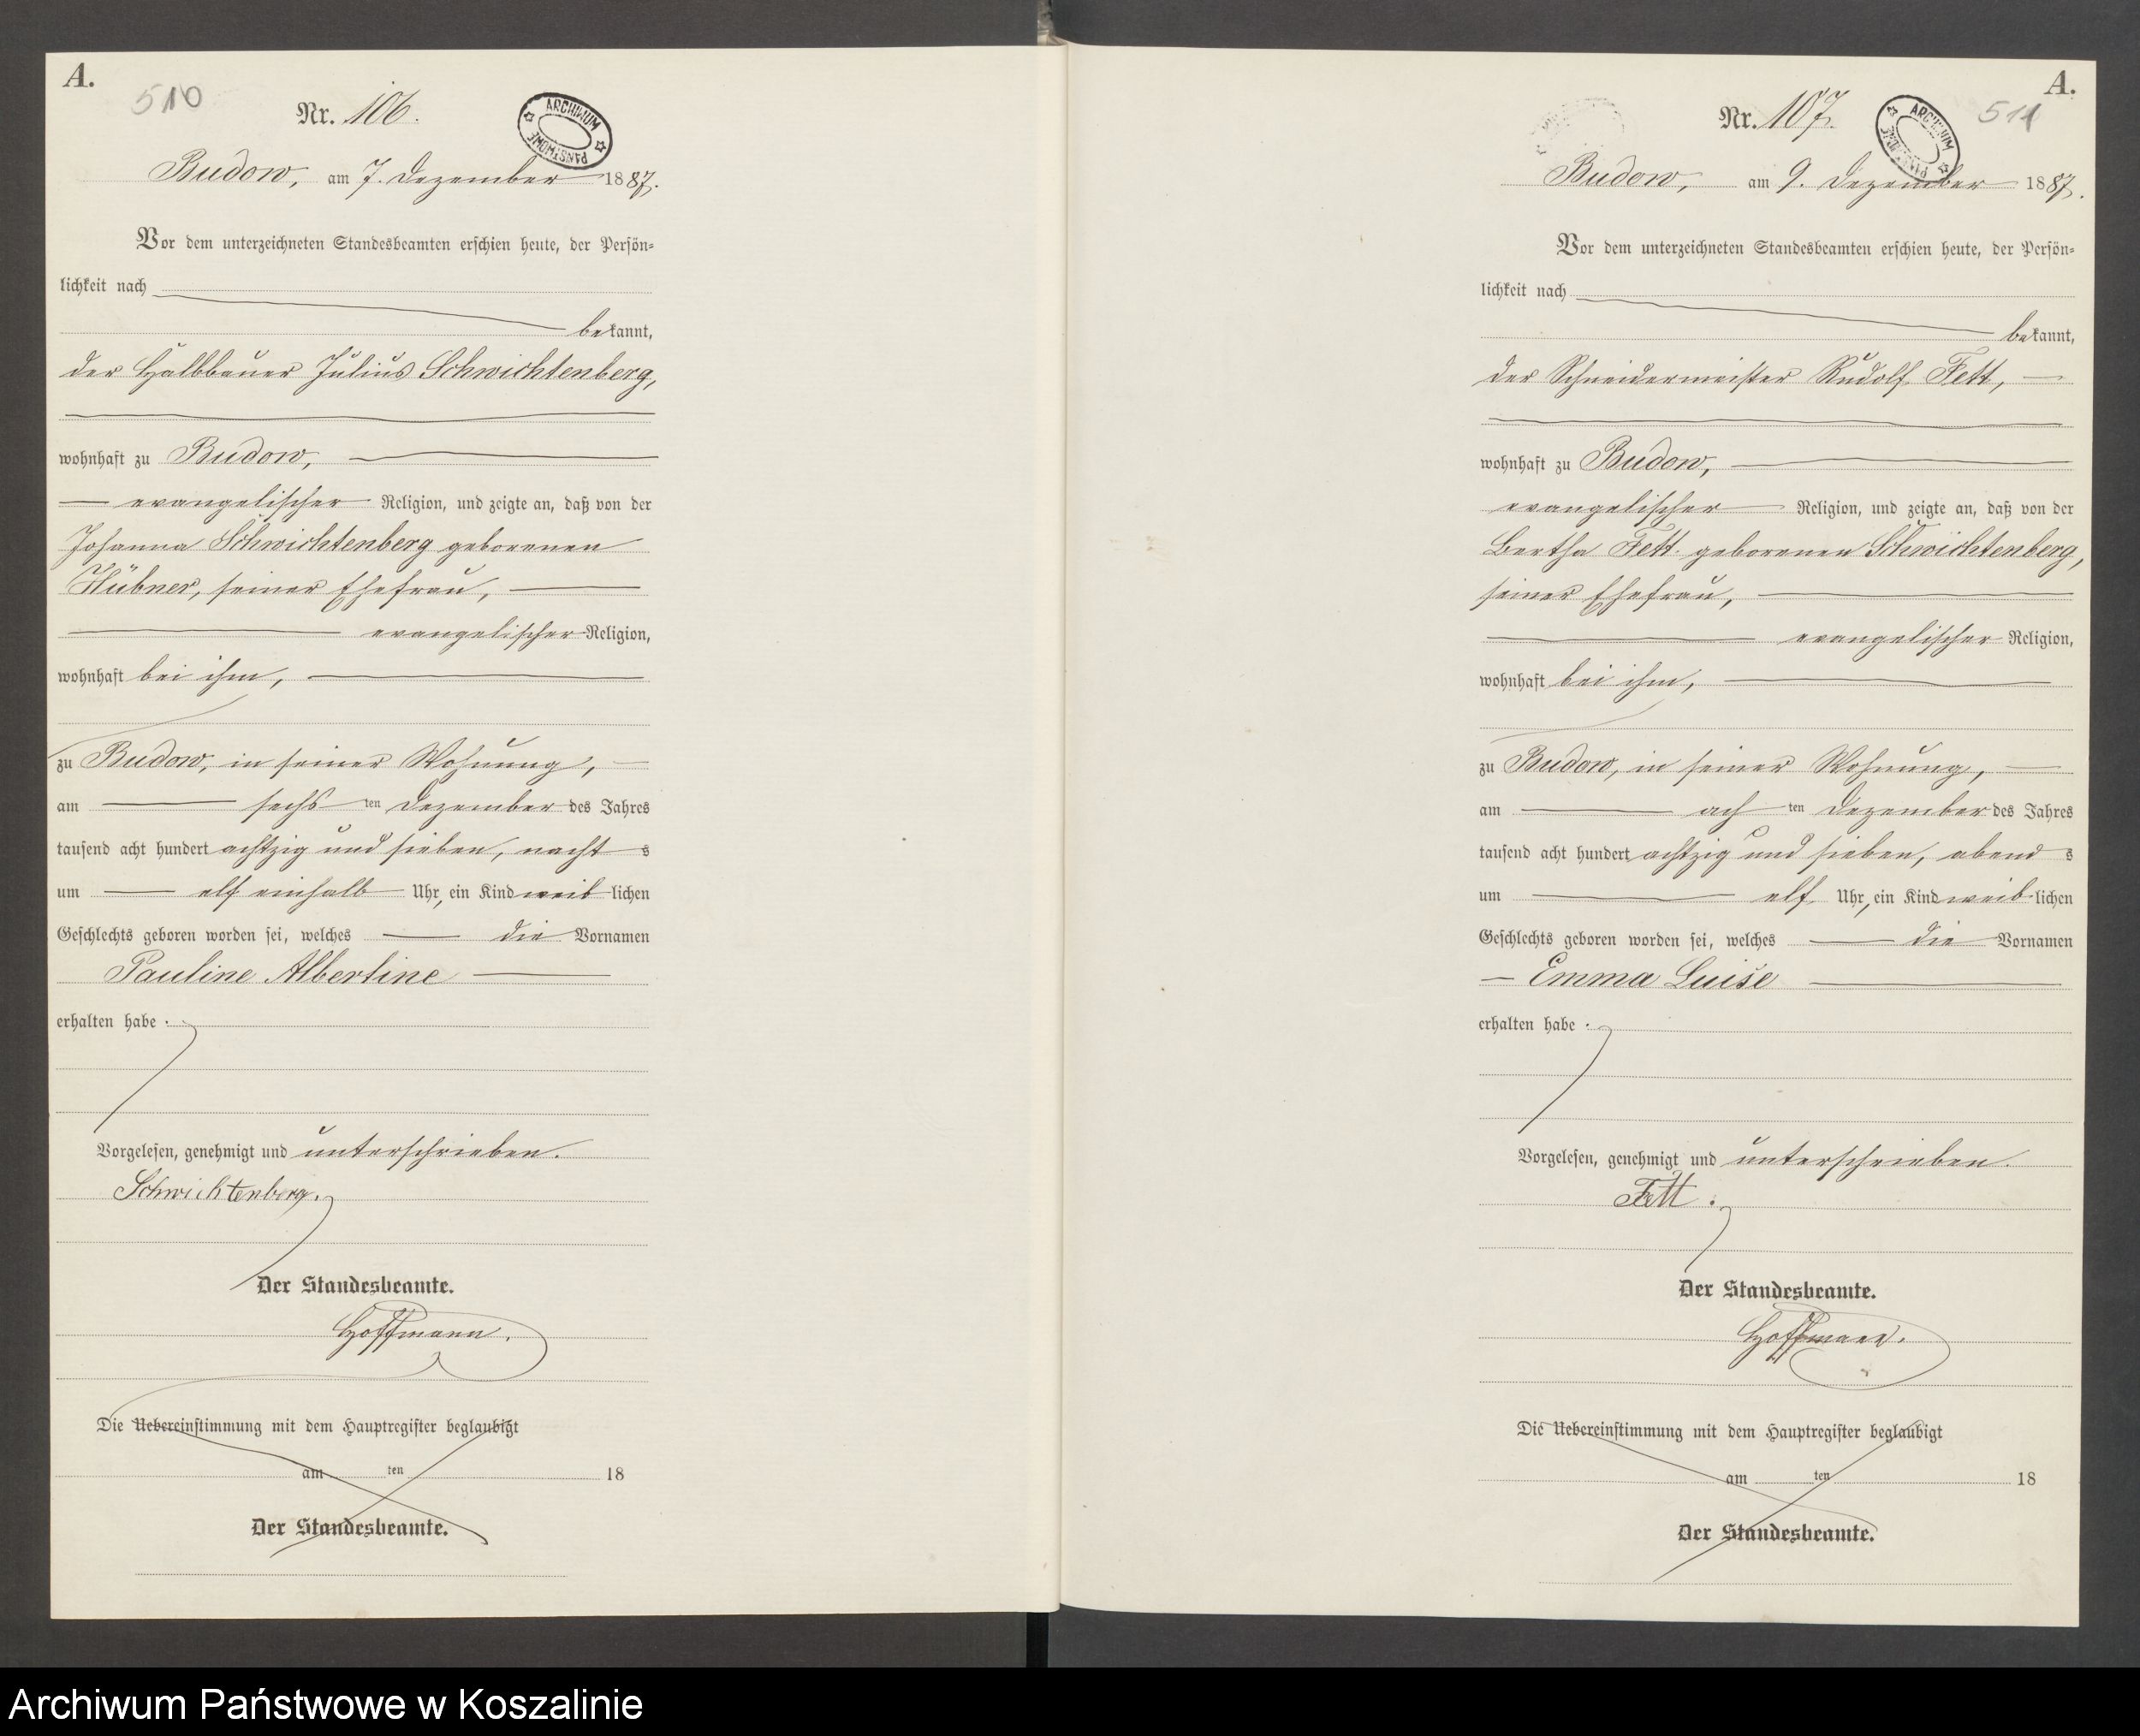 A.
510
Nr. 106.
ARCHIWUM PAŃSTWOWE
Budow, am 7. Dezember 1887.
Vor dem unterzeichneten Standesbeamten erschien heute, der Persön-
lichkeit nach
bekannt,
der Halbbauer Julius Schwichtenberg,
wohnhaft zu Budow,
evangelischer Religion, und zeigte an, daß von der
Johanna Schwichtenberg geborenen
Hübner, seiner Ehefrau,
evangelischer Religion,
wohnhaft bei ihm,
zu Budow, in seiner Wohnung,
am sechs ten Dezember des Jahres
tausend acht hundert achtzig und sieben, nacht s
um elf einhalb Uhr, ein Kind weib lichen
Geschlechts geboren worden sei, welches die Vornamen
Pauline Albertine
erhalten habe.
Vorgelesen, genehmigt und unterschrieben.
Schwichtenberg.
Der Standesbeamte.
Hoffmann.
Die Uebereinstimmung mit dem Hauptregister beglaubigt
am ten 18
Der Standesbeamte.
A.
511
Nr. 107.
ARCHIWUM PAŃSTWOWE
Budow, am 9. Dezember 1887.
Vor dem unterzeichneten Standesbeamten erschien heute, der Persön-
lichkeit nach
bekannt,
der Schneidermeister Rudolf Fett,
wohnhaft zu Budow,
evangelischer Religion, und zeigte an, daß von der
Bertha Fett geborenen Schwichtenberg,
seiner Ehefrau,
evangelischer Religion,
wohnhaft bei ihm,
zu Budow, in seiner Wohnung,
am ach ten Dezember des Jahres
tausend acht hundert achtzig und sieben, abend s
um elf Uhr, ein Kind weib lichen
Geschlechts geboren worden sei, welches die Vornamen
Emma Luise
erhalten habe.
Vorgelesen, genehmigt und unterschrieben.
Fett.
Der Standesbeamte.
Hoffmann.
Die Uebereinstimmung mit dem Hauptregister beglaubigt
am ten 18
Der Standesbeamte.
Archiwum Państwowe w Koszalinie